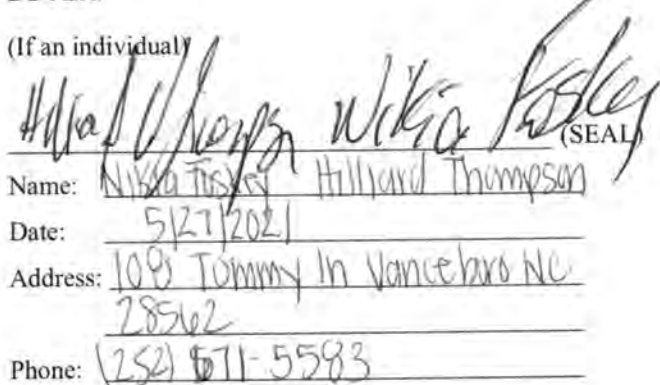 (If an individual)
Hilliard Thompson Nikia Foskey
(SEAL)
Name: Nikia Foskey Hilliard Thompson
Date: 5/27/2021
Address: Tommy ln Vanceboro NC
28562
Phone: (252) 671-5583